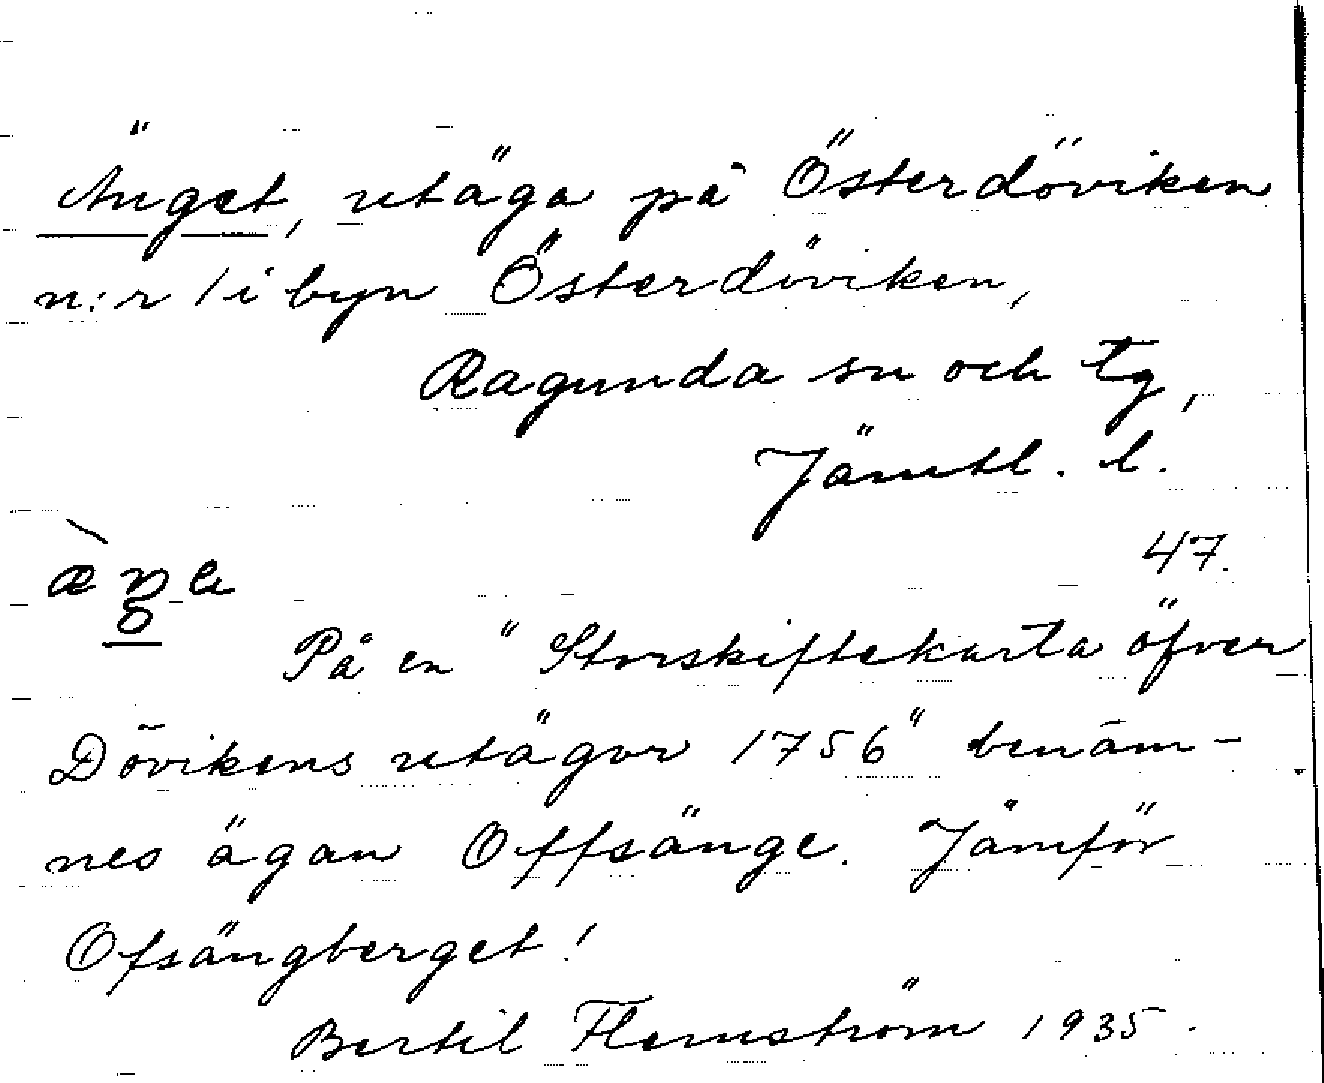 Änget, utäga på Österdöviken
n:r 1 i byn Österdöviken,
Ragunda sn och tg,
Jämtl. l.
47.
På en "Storskiftekarta öfver
Dövikens utägor 1756" benäm-
nes ägan Offsänge. Jämför
Ofsängberget!
Bertil Flemström 1935.